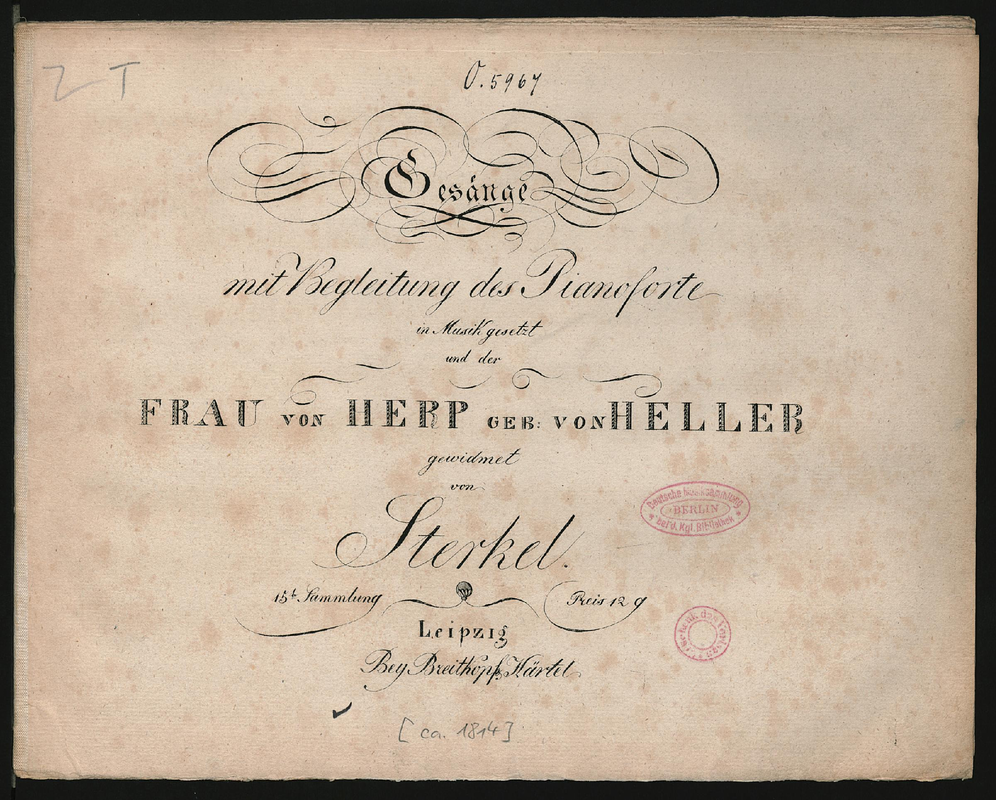 Z T
O. 5967
Gesänge
mit Begleitung des Pianoforte
in Musik gesetzt
und der
FRAU VON HERP GEB: VON HELLER
gewidmet
von
Sterkel.
15te Sammlung
Preis 12 g
Leipzig
Bey Breitkopf & Härtel.
[ca. 1814]
Deutsche Musiksammlung
BERLIN
bei d. Kgl. Bibliothek